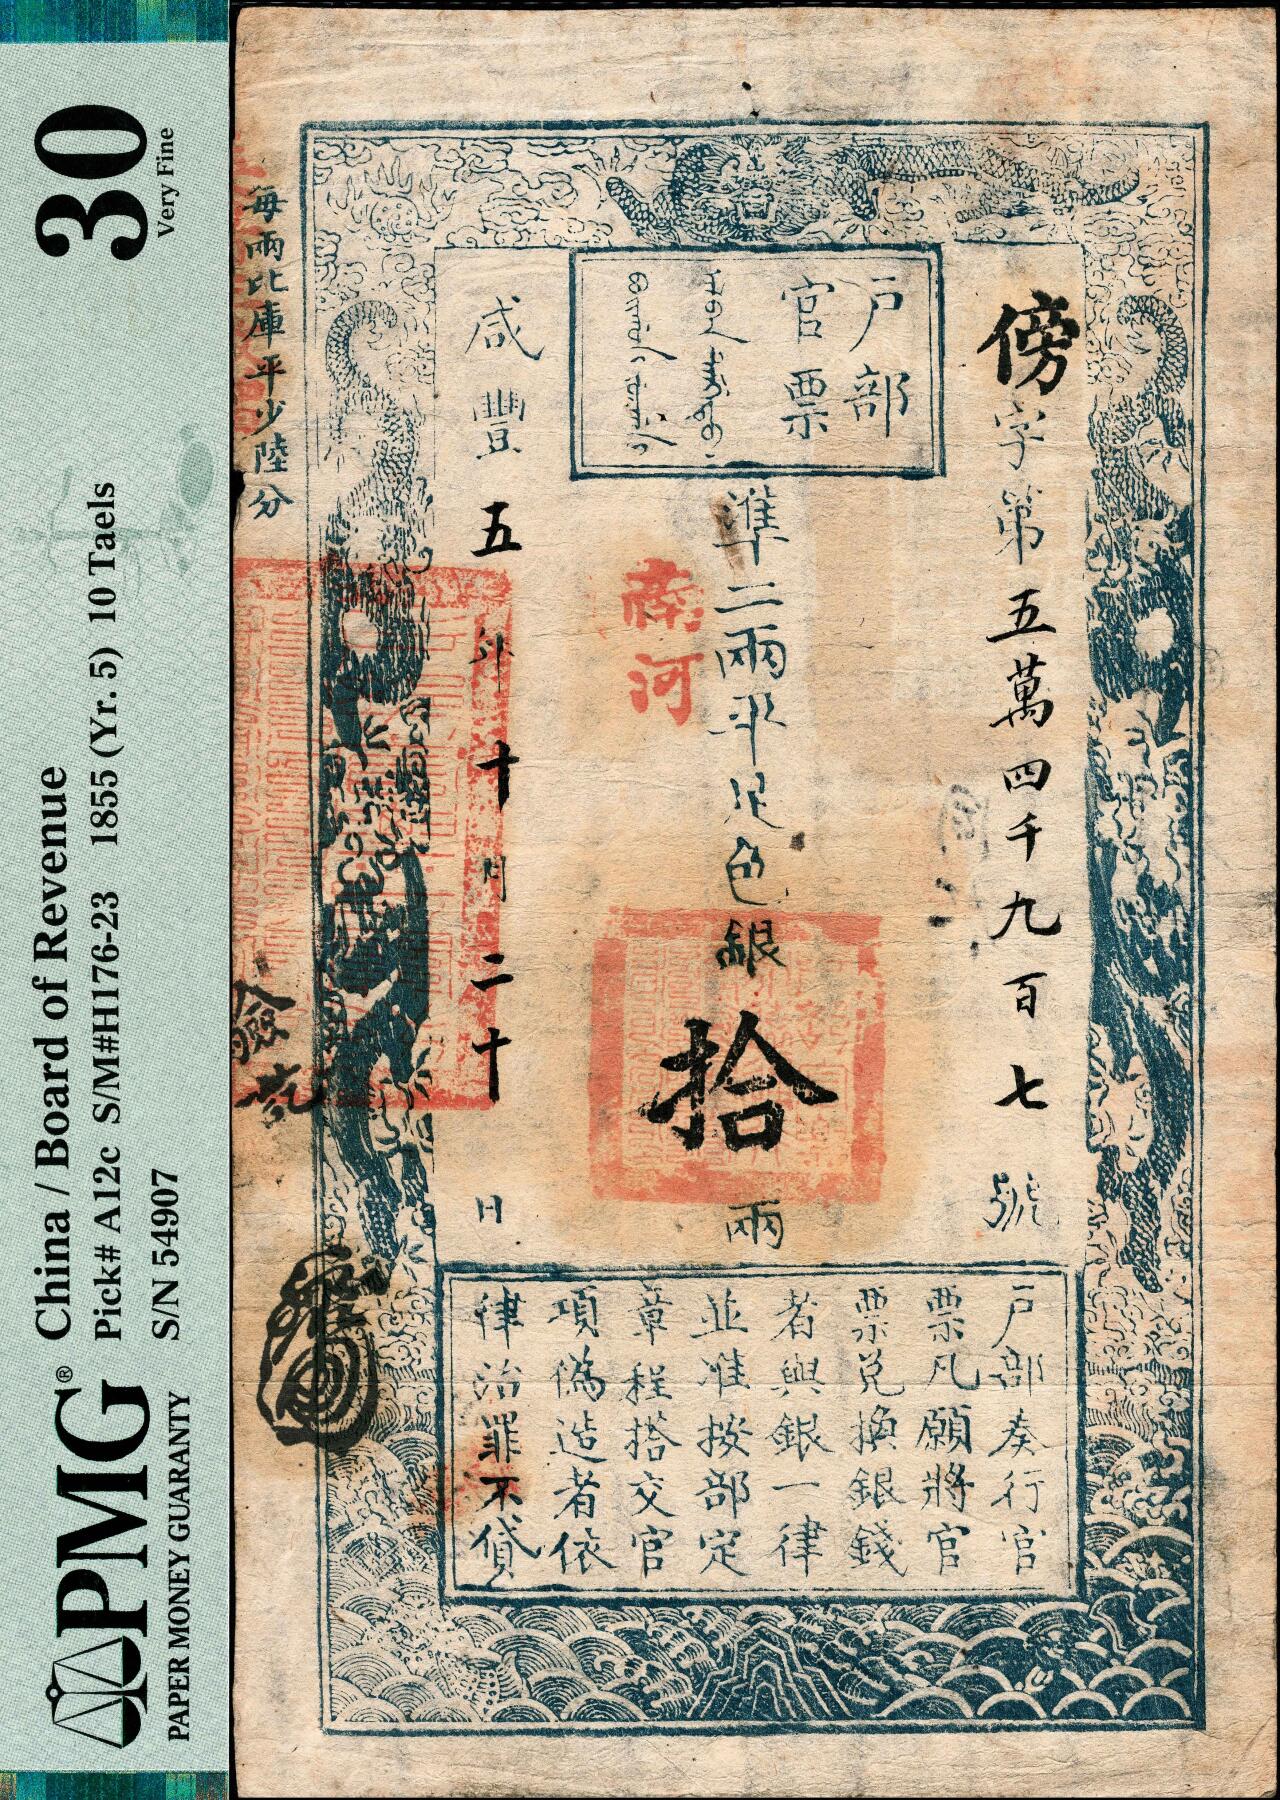 30
Very Fine
China / Board of Revenue
Pick# A12c S/M#H176-23 1855 (Yr. 5) 10 Taels
S/N 54907
PMG®
PAPER MONEY GUARANTY
戶部
官票
傍字第五萬四千九百七號
準二兩平足色銀拾兩
南河
咸豐五年十月二十日
每兩比庫平少陸分
戶部奏行官
票凡願將官
票兌換銀錢
者與銀一律
並准按部定
章程搭交官
項偽造者依
律治罪不貸